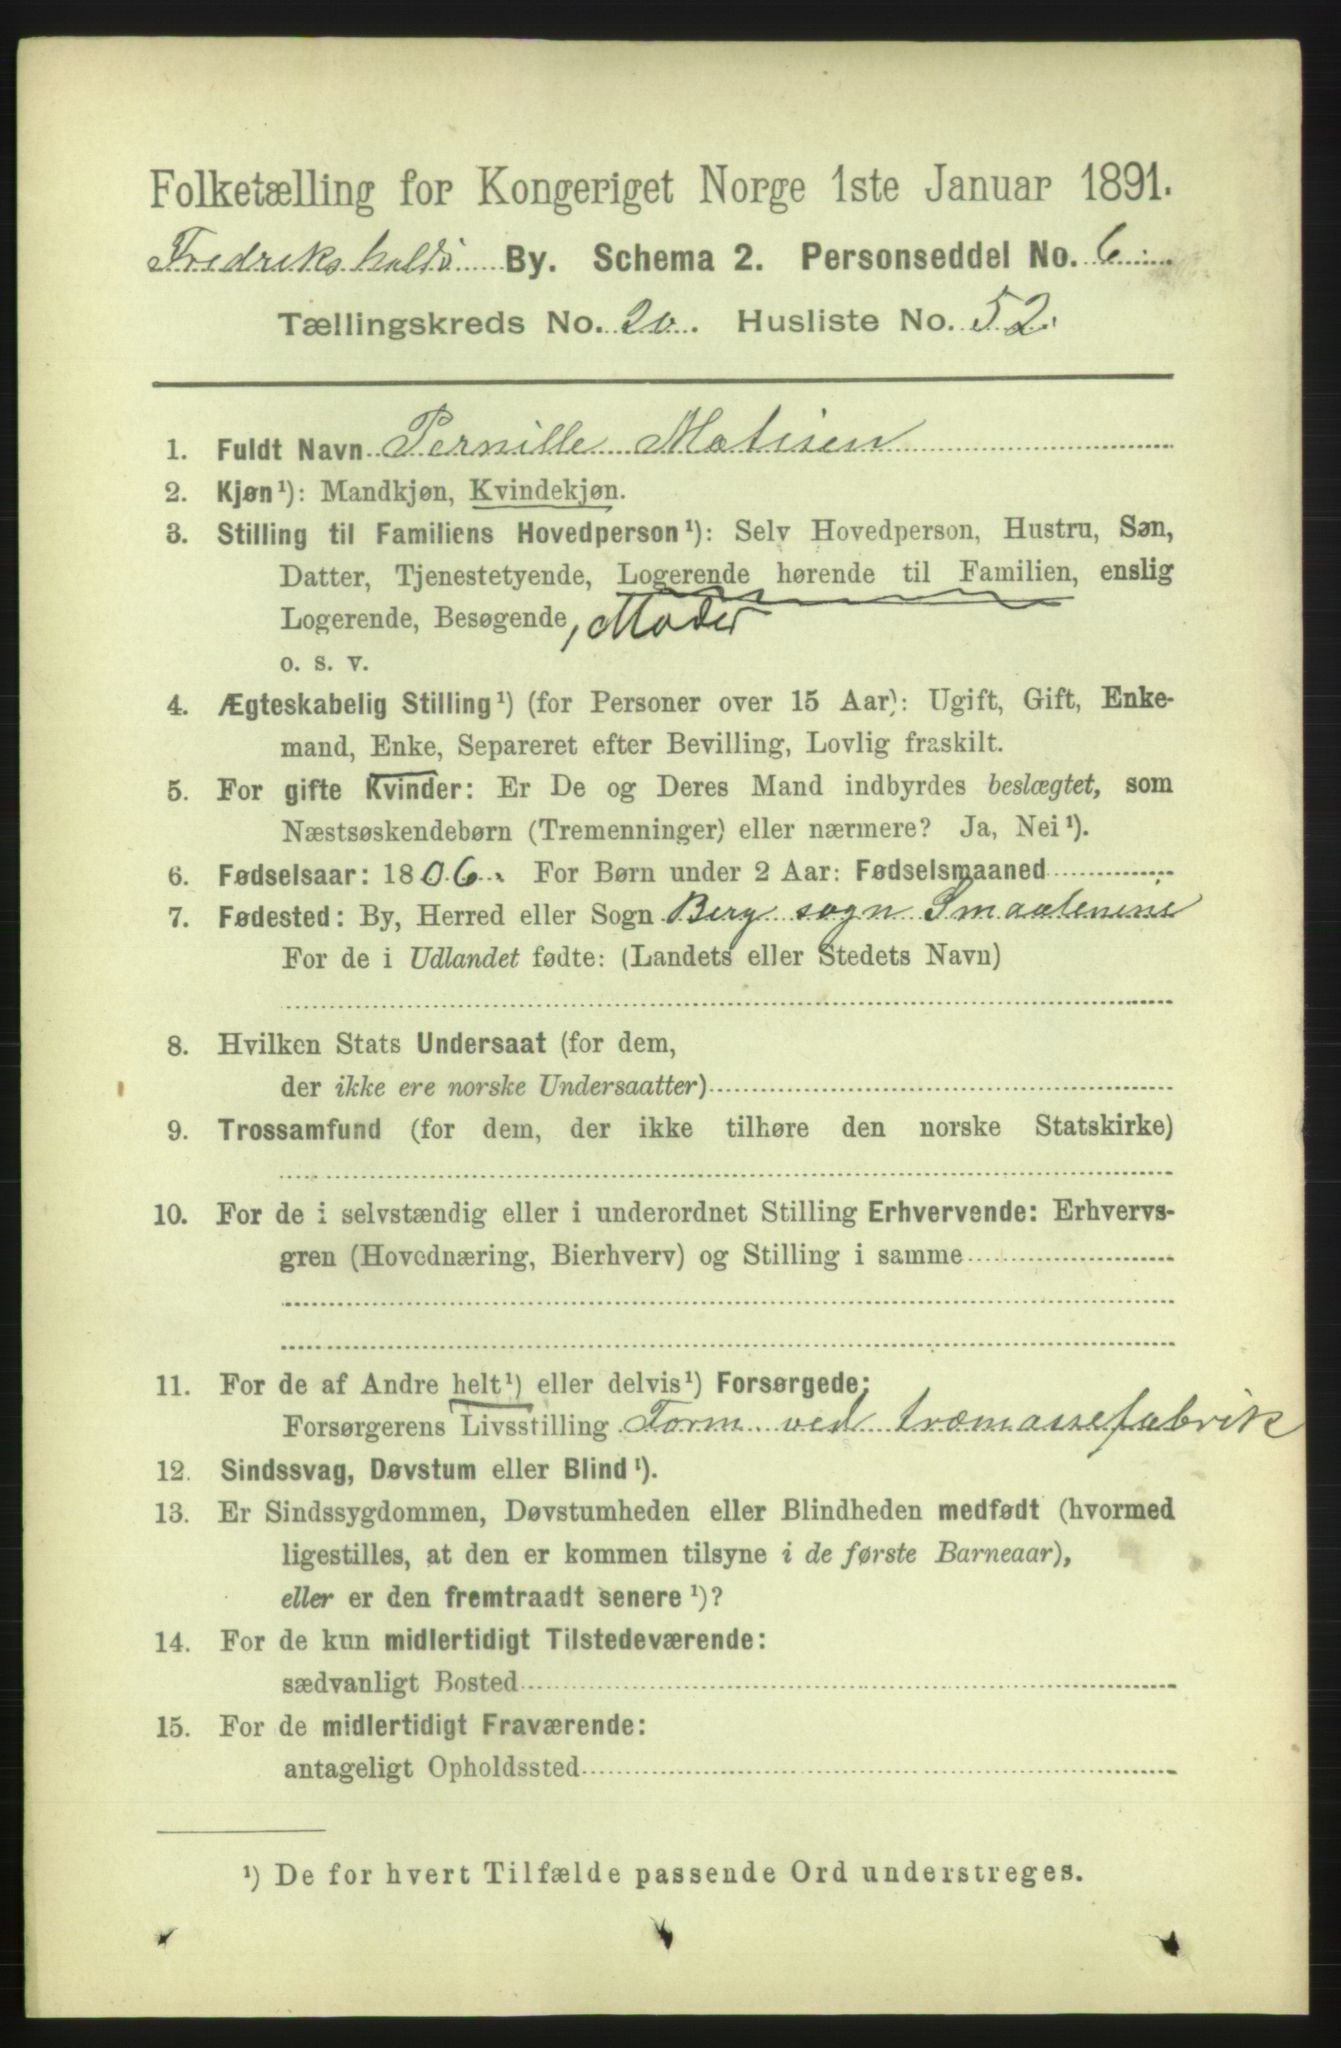 Folketælling for Kongeriget Norge 1ste Januar 1891.
Fredrikshalds By. Schema 2. Personseddel No. 6.
Tællingskreds No. 20. Husliste No. 52.
1. Fuldt Navn Pernille Matisen
2. Kjøn¹): Mandkjøn, Kvindekjøn.
3. Stilling til Familiens Hovedperson¹): Selv Hovedperson, Hustru, Søn,
Datter, Tjenestetyende, Logerende hørende til Familien, enslig
Logerende, Besøgende, Moder
o. s. v.
4. Ægteskabelig Stilling¹) (for Personer over 15 Aar): Ugift, Gift, Enke-
mand, Enke, Separeret efter Bevilling, Lovlig fraskilt.
5. For gifte Kvinder: Er De og Deres Mand indbyrdes beslægtet, som
Næstsøskendebørn (Tremenninger) eller nærmere? Ja, Nei¹).
6. Fødselsaar: 1806. For Børn under 2 Aar: Fødselsmaaned
7. Fødested: By, Herred eller Sogn Berg sogn Smaalenene
For de i Udlandet fødte: (Landets eller Stedets Navn)
8. Hvilken Stats Undersaat (for dem,
der ikke ere norske Undersaatter)
9. Trossamfund (for dem, der ikke tilhøre den norske Statskirke)
10. For de i selvstændig eller i underordnet Stilling Erhvervende: Erhvervs-
gren (Hovednæring, Bierhverv) og Stilling i samme
11. For de af Andre helt¹) eller delvis¹) Forsørgede:
Forsørgerens Livsstilling Form. ved træmassefabrik
12. Sindssvag, Døvstum eller Blind¹).
13. Er Sindssygdommen, Døvstumheden eller Blindheden medfødt (hvormed
ligestilles, at den er kommen tilsyne i de første Barneaar),
eller er den fremtraadt senere¹)?
14. For de kun midlertidigt Tilstedeværende:
sædvanligt Bosted
15. For de midlertidigt Fraværende:
antageligt Opholdssted
¹) De for hvert Tilfælde passende Ord understreges.